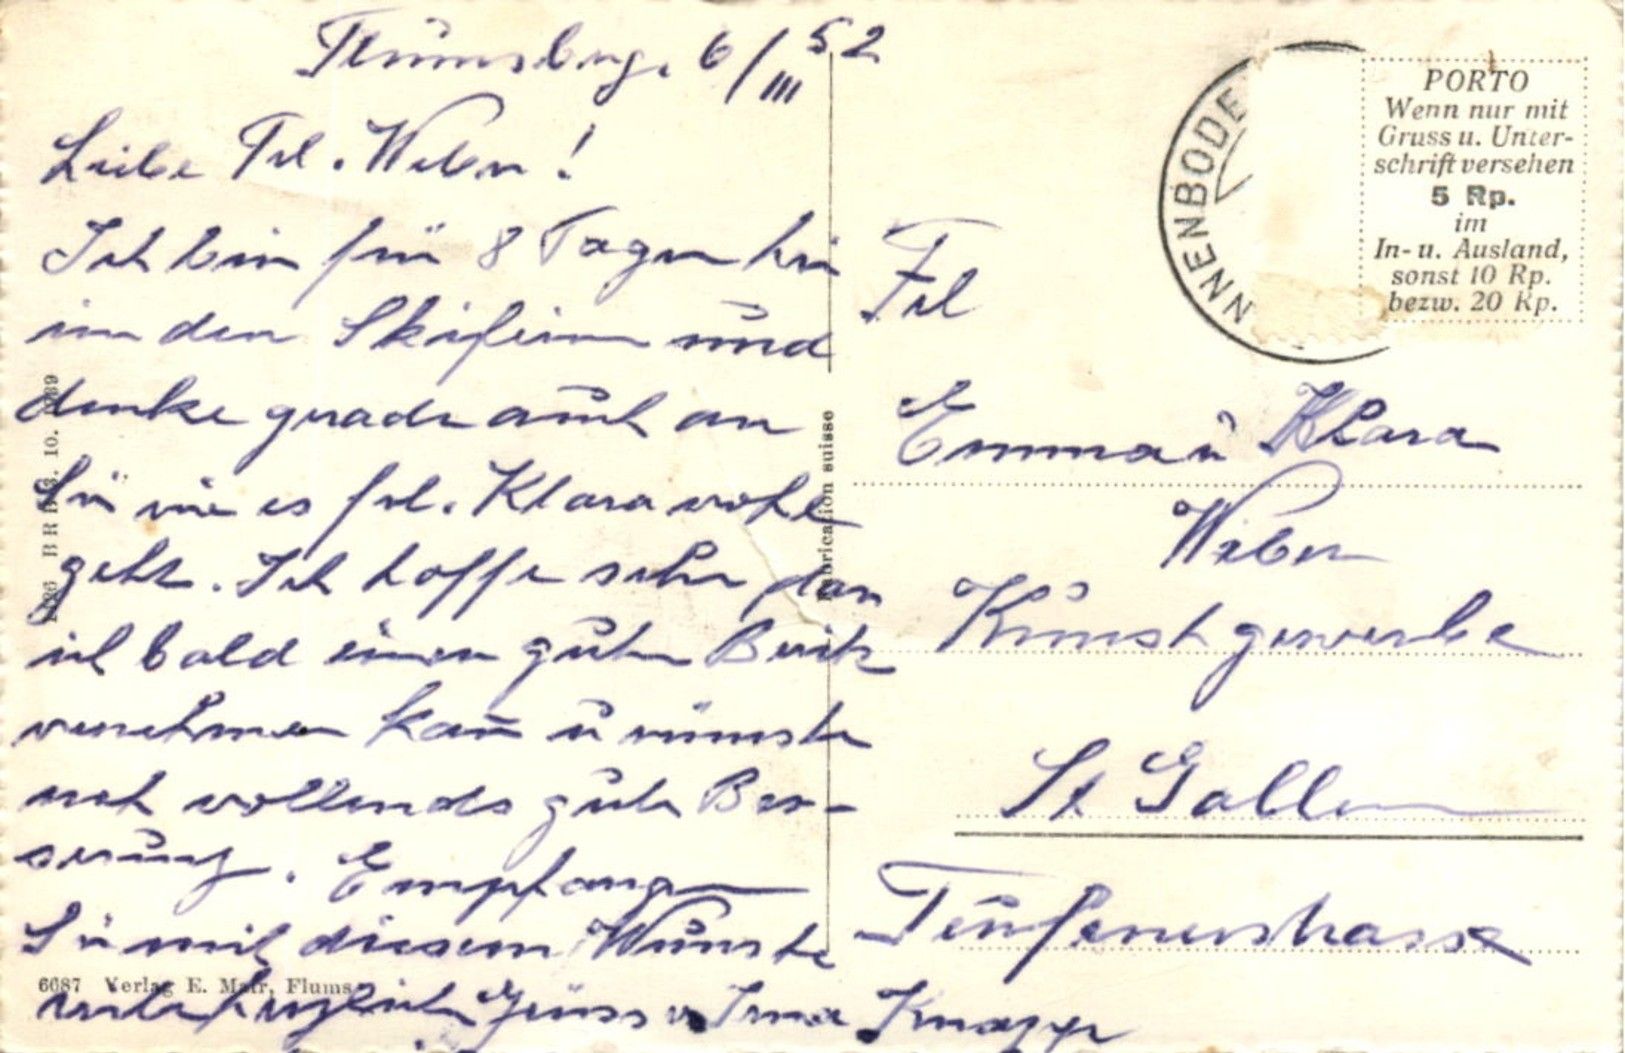 Flumsbrg. 6/III 52
Liebe Frl. Weber!
Ich bin für 8 Tagen hier
in den Skiferien und
denke gerade auch an
Sie wie es frl. Klara wohl
geht. Ich hoffe sehr dass
ich bald einen guten Bericht
vernehmen kann u wünsche
noch vollends gute Bes-
serung. Empfangen
Sie mit diesem Wunsche
recht herzliche Grüsse v. Irma Knapp
Frl
Emma u Klara
Weber
Kunstgewerbe
St Gallen
Teufenerstrasse
NNENBODE
PORTO
Wenn nur mit
Gruss u. Unter-
schrift versehen
5 Rp.
im
In- u. Ausland,
sonst 10 Rp.
bezw. 20 Rp.
BRB 3. 10. 39
Fabrication suisse
6687 Verlag E. Mair, Flums